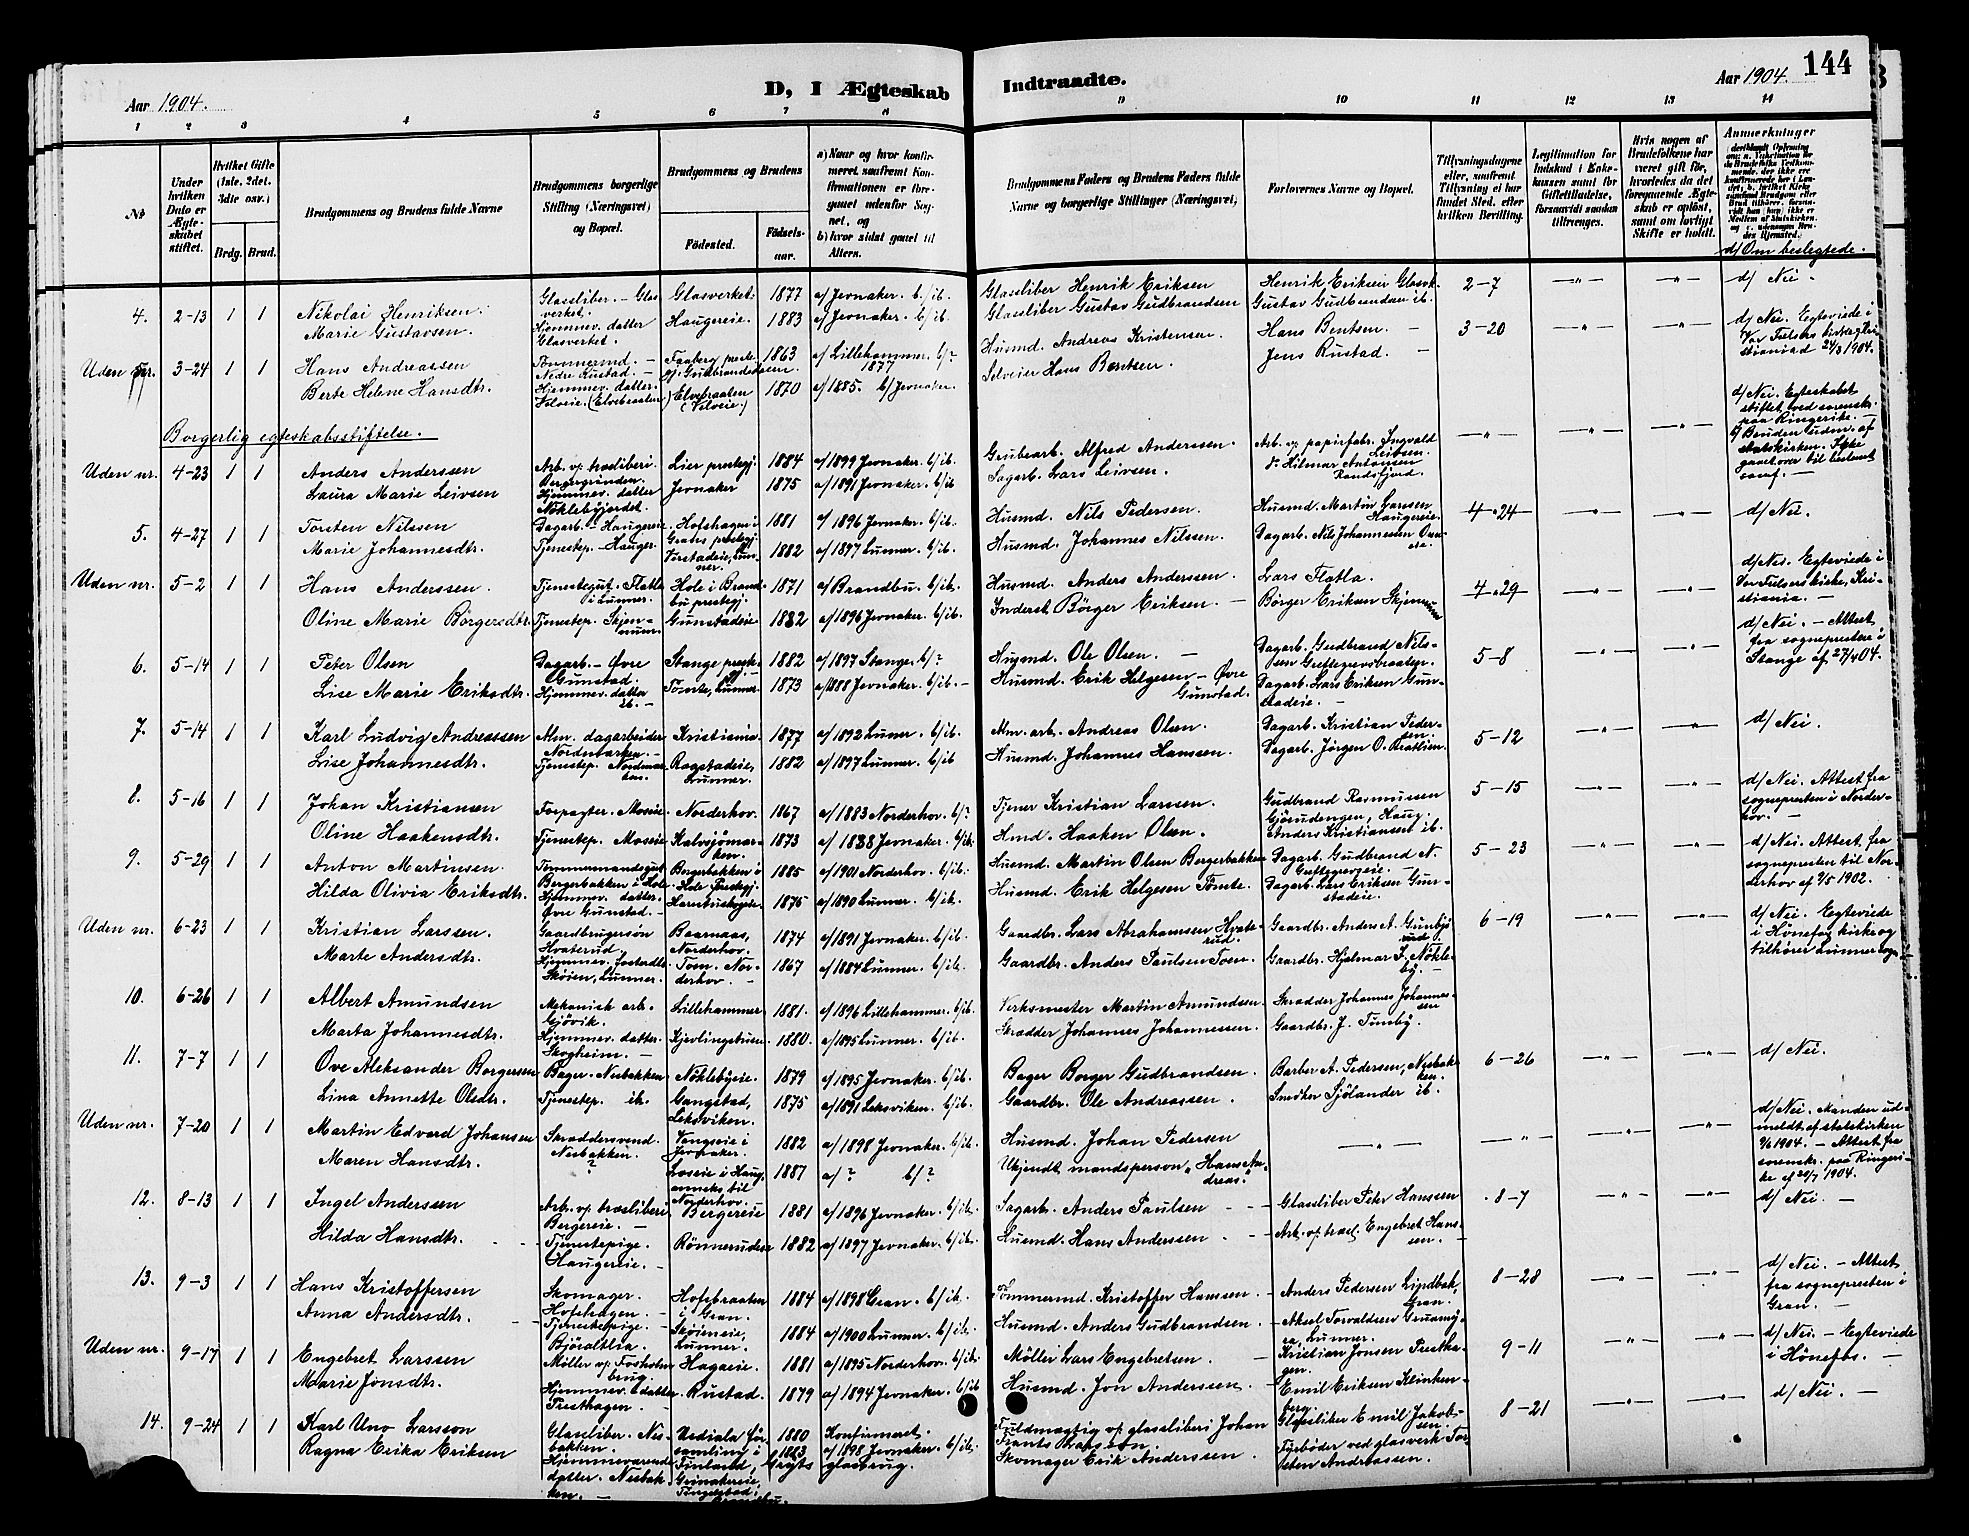 144
D, I Ægteskab Indtraadte.
Aar 1904.
Aar 1904.
1 2 3 4 5 6 7 8 9 10 11 12 13 14
No
Under hvilken Dato er Ægteskabet stiftet.
Hvilket Gifte (1ste, 2det, 3die osv.)
Brdg. Brud.
Brudgommens og Brudens fulde Navne
Brudgommens borgerlige Stilling (Næringsvei) og Bopæl.
Brudgommens og Brudens
Fødested. Fødselsaar.
a) Naar og hvor konfirmeret, saafremt Konfirmationen er foregaaet udenfor Sognet, og
b) hvor sidst gaaet til Alters.
Brudgommens Faders og Brudens Faders fulde Navne og borgerlige Stillinger (Næringsvei)
Forlovernes Navne og Bopæl.
Tillysningsdagene eller, saafremt Tillysning ei har fundet Sted, efter hvilken Bevilling.
Legitimation for Indskud i Enkekassen samt for Giftetilladelse, forsaavidt saadan tiltrænges.
Hvis nogen af Brudefolkene har været gift før, hvorledes da det foregaaende Ægteskab er opløst, samt om lovligt Skifte er holdt.
Anmerkninger
d/ Om beslegtede.
4. 2-13 1 1 Nikolai Henriksen. Glassliber. - Glasverket. Glasverket. 1877 a/ Jevnaker. b/ib. Glassliber Henrik Eriksen Henrik Eriksen Glasv. 2-7 d/ Nei.
Marie Gustavsen. Hjemmev. datter Glasverket. Haugereie. 1883 a/ Jevnaker. b/ib. Glassliber Gustav Gudbrandsen Gustav Gudbrandsen ib.
Uden nr. 3-24 1 1 Hans Andreassen Tømmermd. - Nedre Rustad. Faaberg prestegj. Gudbrandsdalen. 1863 a/ Lillehammer b/? 1877 Husmd. Andreas Kristensen. Hans Bentsen. 3-20 d/ Nei. Egteviede i Vor Frelsers kirke, Kristiania d 24/3 1904.
Berte Helene Hansdtr. Hjemmev. datter. Velveie. (Elvebraaten) Elvebraaten (Velveie) 1870 a/1885. b/ Jevnaker. Selveier Hans Bentsen. Jens Rustad.
Borgerlig egteskabsstiftelse.
Uden nr. 4-23 1 1 Anders Anderssen Arb. vp. træsliberi Bergergrinden. Lier prestegj. 1884 a/1899 Jevnaker. b/ib. Grubearb. Alfred Anderssen. Arb. vp papirfabr. Ingvald Leibsen. d/ Nei. Egteskabet stiftet ved sorenskr. paa Ringerike.
Laura Marie Leivsen Hjemmev. datter Nøklebyjordet. Jevnaker 1875 a/1891 Jevnaker. b/ib Sagarb. Lars Leivsen. Hilmar Antonsen Randsfjord. Bruden udm. af statskirken. Ikke gaaet over til bestemt samf.
5. 4-27 1 1 Torsten Nilssen Dagarb. - Haugereie Hofshagen i Grans prestegj. 1881 a/ 1896 Jevnaker. b/ib. Husmd. Nils Pedersen. Husmd. Martin Larssen Haugereie. 4-24 d/ Nei.
Marie Johannesdtr. Tjenestep. - Hauger. 1882 a/1897 Lunner. b/ib. Husmd. Johannes Nilssen. Dagarb. Nils Johannessen
Uden nr. 5-2 1 1 Hans Anderssen. Tjenestegut. Flatla i Lunner. Hole i Brandbu prestegj. 1871 a/ Brandbu. b/ib. Husmd. Anders Anderssen. Lars Flatla. 4-29 d/ Nei. Egteviede i Vor Frelsers kirke, Kristiania.
Oline Marie Børgersdtr. Tjenestep. Skjennum Gunstadeie 1882 a/1896 Jevnaker. b/ib. Inderst Børger Eriksen. Børger Eriksen Skjennum
6. 5-14 1 1 Peter Olsen Dagarb. - Øvre Gunstad. Stange prestegj. 1882 a/1897 Stange. b/? Husmd. Ole Olsen. Dagarb. Gudbrand Nilssen 5-8 d/ Nei. - Attest fra sognepresten i Stange af 27/4 04.
Lise Marie Eriksdtr. Hjemmev. datter ib. Tømte, Lunner. 1873 a/1888 Jevnaker. b/ib. Husmd. Erik Helgesen - Øvre Gunstad. Dagarb. Lars Eriksen Gunstadeie.
7. 5-14 1 1 Karl Ludvig Andreassen Alm. dagarbeider Nordmarken. Kristiania. 1877 a/1892 Lunner. b/ib Alm. arb. Andreas Olsen. Dagarb. Kristian Pedersen. 5-12 d/ Nei.
Lise Johannesdtr. Tjenestep. Nordmarken. Ragstadeie, Lunner. 1882 a/1897 Lunner. b/ib Husmd. Johannes Hanssen. Dagarb. Jørgen O. Bratlien.
8. 5-16 1 1 Johan Kristiansen Forpagter. Mosie Norderhov. 1867 a/1883 Norderhov. b/? Tjener Kristian Larssen. Gudbrand Rasmussen 5-15 d/ Nei. Attest fra sognepresten i Norderhov.
Oline Haakensdtr. Tjenestep. Mosie Kalvsjømarken. 1873 a/1888 Jevnaker. b/ib. Hmd. Haaken Olsen. Anders Kristiansen ib.
9. 5-29 1 1 Anton Martinsen. Tømmermandsgut Bergerbakken i Hole Bergerbakken i Hole Prestegj. 1885 a/1901 Norderhov. b/ib. Husmd. Martin Olsen Bergerbakken Dagarb. Gudbrand N. 5-23 d/ Nei. Attest fra sognepresten til Norderhov af 2/5 1902.
Hilda Olivia Eriksdtr. Hjemmev. datter. Øvre Gunstad. 1875 a/1890 Lunner. b/ib. Husmd. Erik Helgesen Tømte. Dagarb. Lars Eriksen Gunstadeie.
Uden nr. 6-23 1 1 Kristian Larssen. Gaardbrugersøn Hvaterud. Baarnaas, Norderhov. 1874 a/1891 Jevnaker. b/ib. Gaardbr. Lars Abrahamssen Hvaterud. Gaardbr. Anders A. 6-19 d/ Nei. Egteviede i Hønefos kirke og tilhører Lunner sogn.
Marte Andersdtr. Hjemmev. fosterdtr. Skøien, Lunner. Toen. Norderhov. 1867 a/1884 Lunner. b/ib. Gaardbr. Anders Paulsen Toen. Gaardbr. Hjelmar I. Nøkleby.
10. 6-26 1 1 Albert Amundsen Mekanisk arb. Gjøvik. Lillehammer 1881. a/1896 Lillehammer. b/ib. Verksmester Martin Amundsen. Skrædder Johannes Johannessen
Marta Johannesdtr. Hjemmev. datter. Skogheim. Kjevlingstuen 1880. a/1895 Lunner. b/ib. Skrædder Johannes Johannessen. Gaardbr. J. Tunby.
11. 7-7 1 1 Ove Aleksander Borgersen Bager. Nesbakken. Nøklebyeie. 1879 a/1895 Jevnaker. b/ib. Bager Borger Gudbrandsen. Barber A. Pedersen, Nesbakken. 6-26 d/ Nei.
Lina Annette Olsdtr. Tjenestep. ib. Gangstad, Leksviken. 1875 a/1891 Leksviken. b/ib. Gaardbr. Ole Andreassen. Smeden Sjölander ib.
Uden nr. 7-20 1 1 Martin Edvard Johansen Skræddersvend. Nesbakken. Vangseie i Jevnaker. 1882 a/1898 Jevnaker. b/ib. Husmd. Johan Pedersen d/ Nei. Manden udmeldt af statskirken 2/6 1904. - Attest fra sorenskr. paa Ringerike af 20/7 1904.
Maren Hansdtr. ? Loseie i Haug, annekss til Norderhov. 1887 a/? b/? Ukjendt mandsperson „Hans Andreas."
12. 8-13 1 1 Ingel Anderssen Arb. vp. træsliberi Bergereie. Bergereie 1881 a/1896 Jevnaker. b/ib. Sagarb. Anders Paulsen Glassliber Peter Hanssen 8-7 d/ Nei.
Hilda Hansdtr. Tjenestepige. Haugereie. Rønnerudeie 1882 a/1897 Jevnaker. b/ib. Husmd. Hans Anderssen. Arb. vp. træsl. Engebret Hanssen.
13. 9-3 1 1 Hans Kristoffersen Skomager. Hofshagen. Hofsbraaten i Gran. 1884 a/1898 Gran. b/ib. Tømmermd. Kristoffer Hanssen. Anders Pedersen Lindbak, Gran. 8-28 d/ Nei. - Attest fra sognepresten i Gran.
Anna Andersdtr. Tjenestepige. Bjøraltlia. Skøieneie, Lunner. 1884 a/1900 Lunner. b/ib. Husmd. Anders Gudbrandsen Aksel Torvaldsen
Uden nr. 9-17 1 1 Engebret Larssen Møller vp. Fosholm brug. Hagaeie. 1881 a/1895 Norderhov. b/ib. Møller Lars Engebretsen. Kristian Jonsen Presthagen. 9-11 d/ Nei. - Egteviede i Hønefos.
Marie Jonsdtr. Hjemmev. datter. Presthagen. Rustad. 1879 a/1894 Jevnaker. b/ib Husmd. Jon Anderssen. Emil Eriksen Klinkenberg.
14. 9-24 1 1 Karl Uno Larsson Glassliber. Nesbakken. Urdiala församling i Finland, 1880 Konfirmeret. Fuldmægtig vp glassliberi Johan Frants Larsson. Glassliber Emil Jakobsen. 8-21 d/ Nei.
Ragna Erika Eriksen Hjemmeværende datter. Nesbakken. Grinakereie, 1883 a/1898 Jevnaker. b/ib. glasbrug. Skomager Erik Anderssen Fyrbøder ved glasverk Torsten Andreassen.